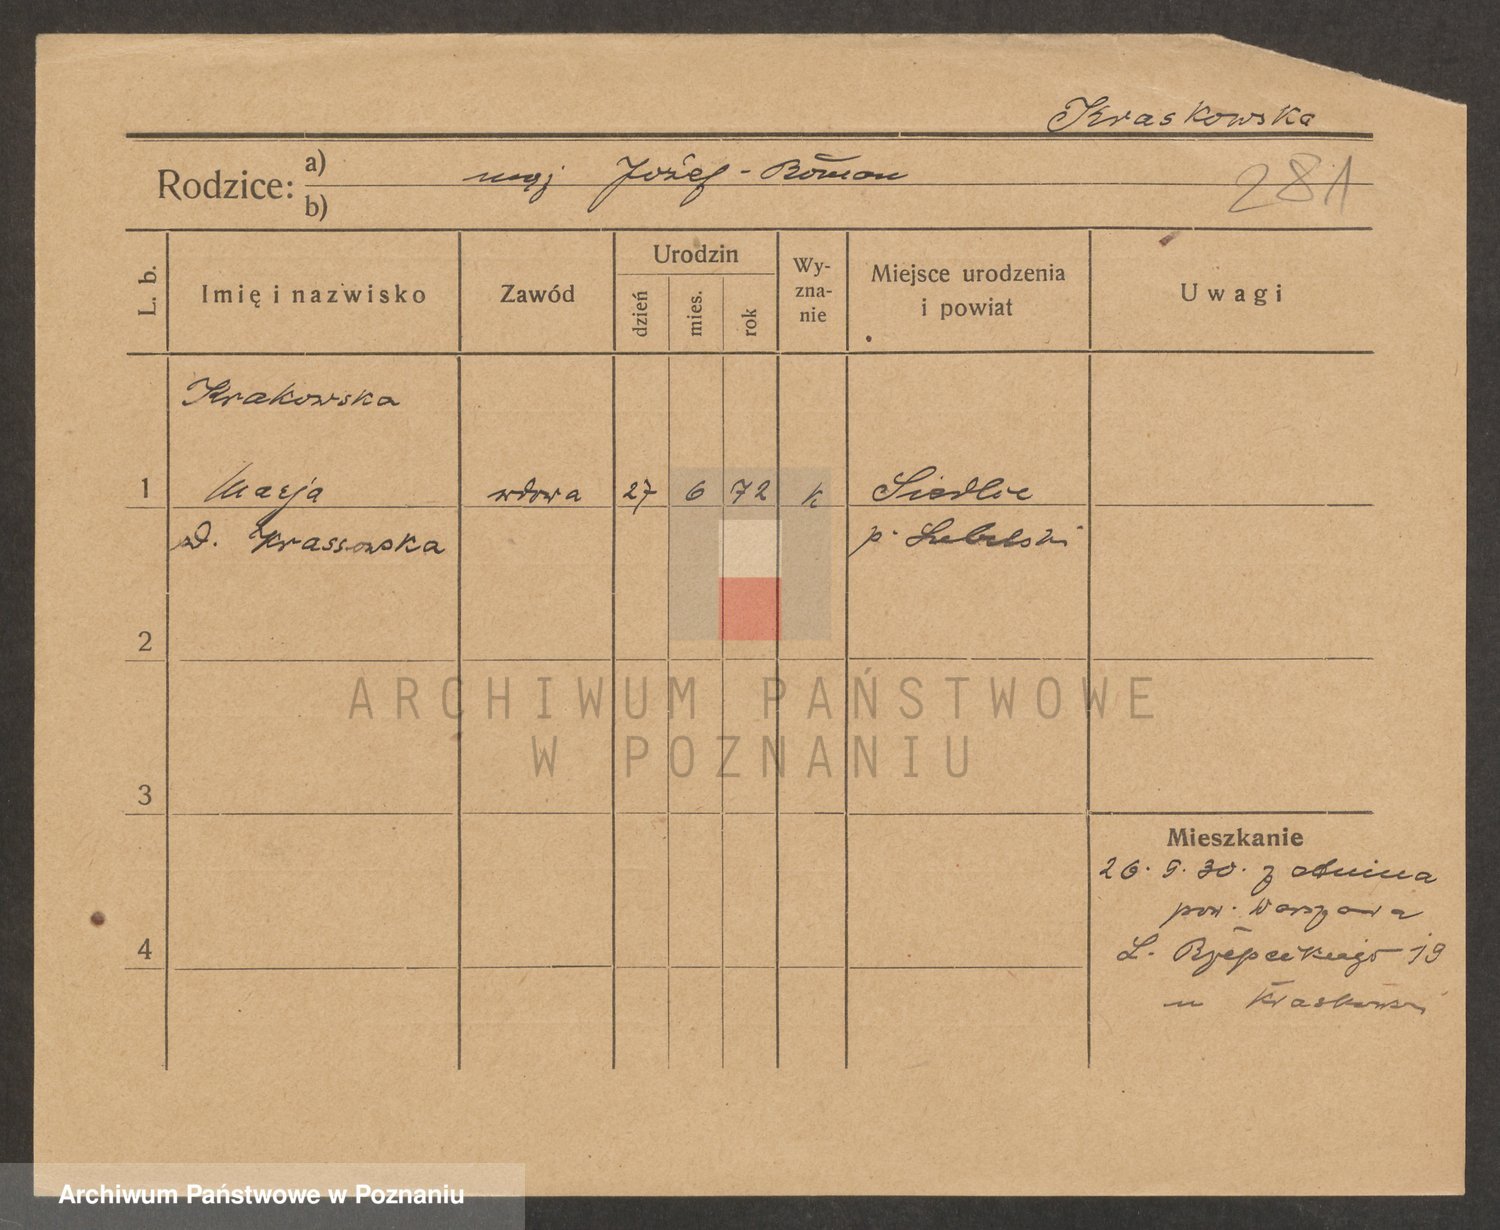 Kraskowska
Rodzice: a) mąż Józef - Roman
b)
281
L. b.
Imię i nazwisko
Zawód
Urodzin
dzień
mies.
rok
Wy-
zna-
nie
Miejsce urodzenia
i powiat
Uwagi
Krakowska
1 Marja wdowa 27 6 72 k Siedlce
d. Krassowska p. Lubelski
2
ARCHIWUM PAŃSTWOWE
W POZNANIU
3
Mieszkanie
26. 9. 30. z Anina
pow. Warszawa
4
L. Rzepeckiego 19
u Kraskowski
Archiwum Państwowe w Poznaniu